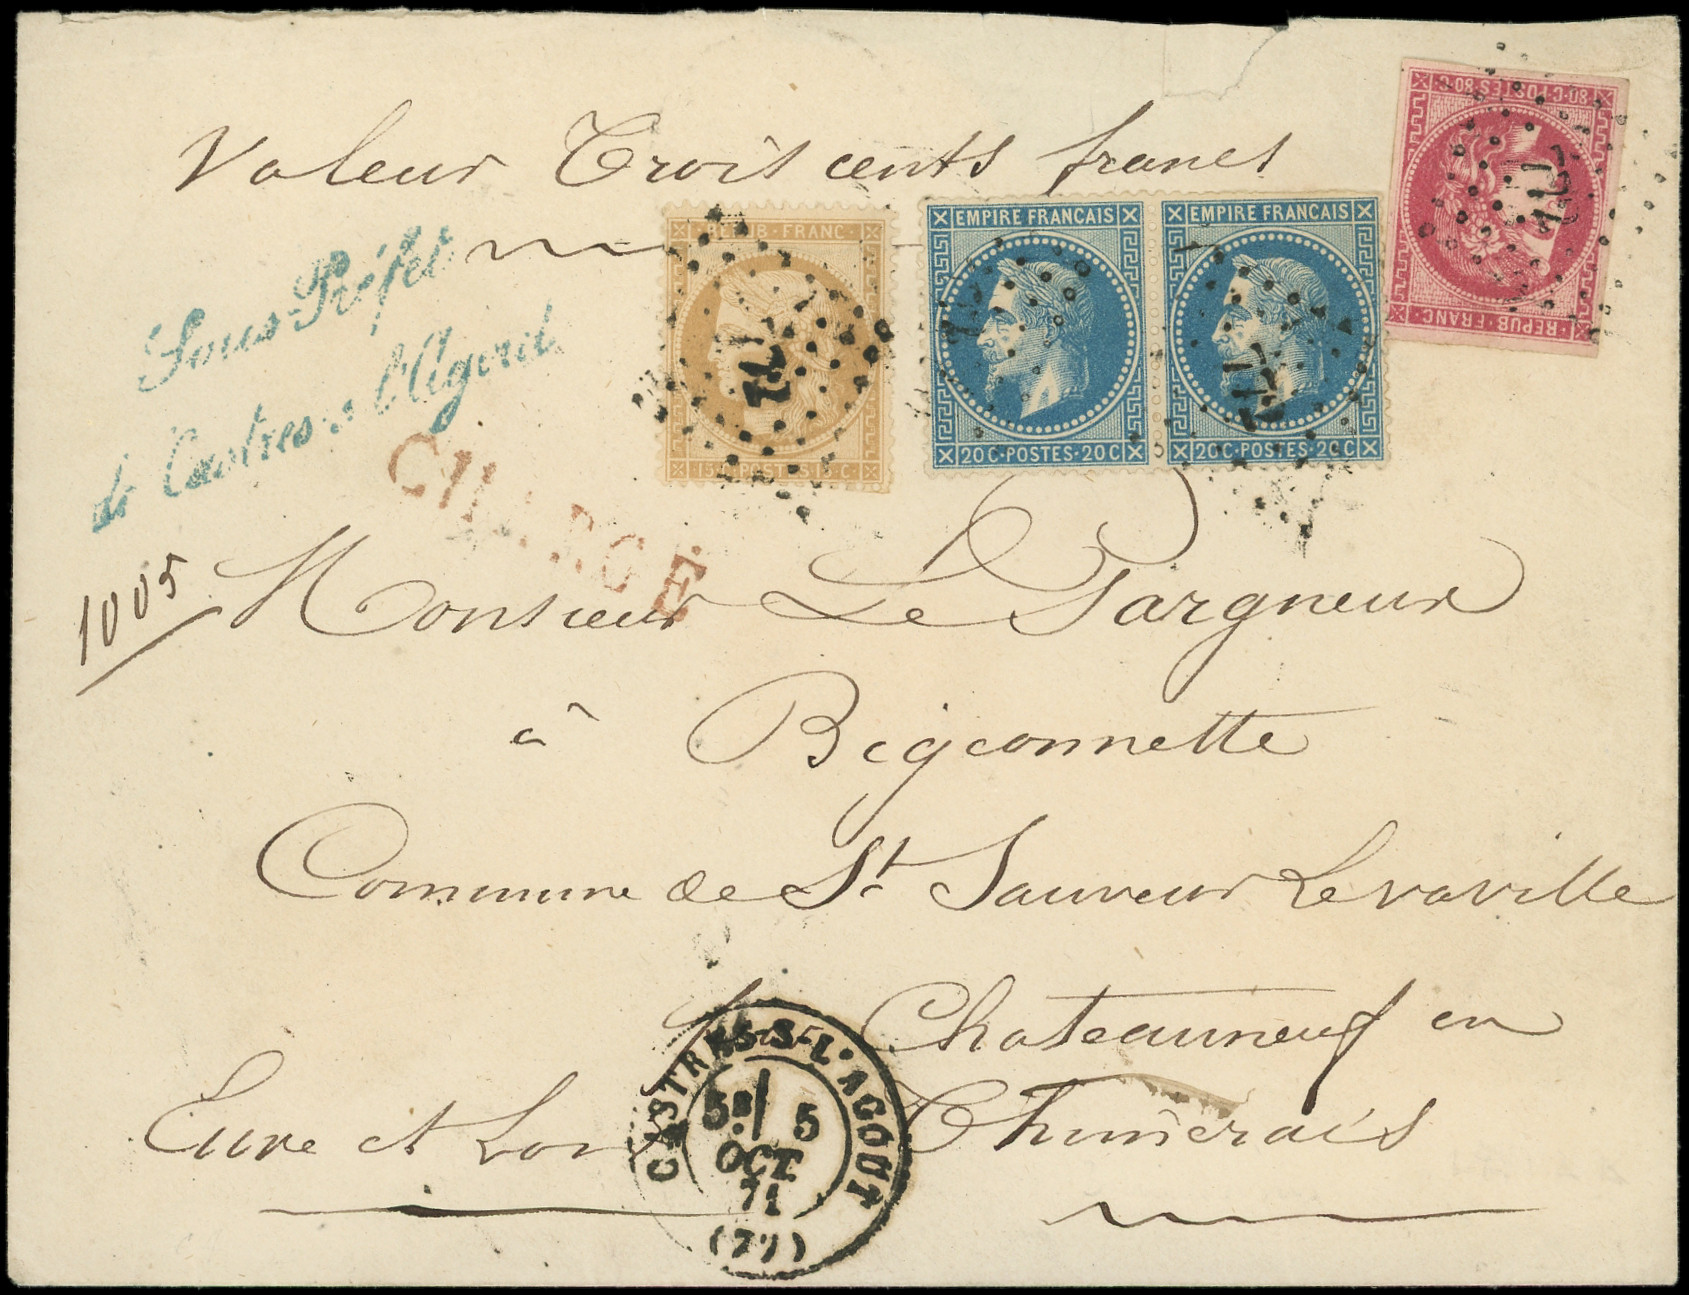 Valeur Trois cents francs
REPUB · FRANC ·
15 C · POSTES · 15 C ·
EMPIRE FRANCAIS
20 C · POSTES · 20 C
EMPIRE FRANCAIS
20 C · POSTES · 20 C
80 · C · POSTES · 80 · C
· REPUB · FRANC ·
Sous-Préfet
de Castres s l'Agout
CHARGE
1005
Monsieur Le Pargneux
à Bigeonnette
Commune de St Sauveur Levaville
Chateauneuf en
Eure et Loir Thimerais
CASTRES-S-L'AGOUT
5E 5
OCT
71